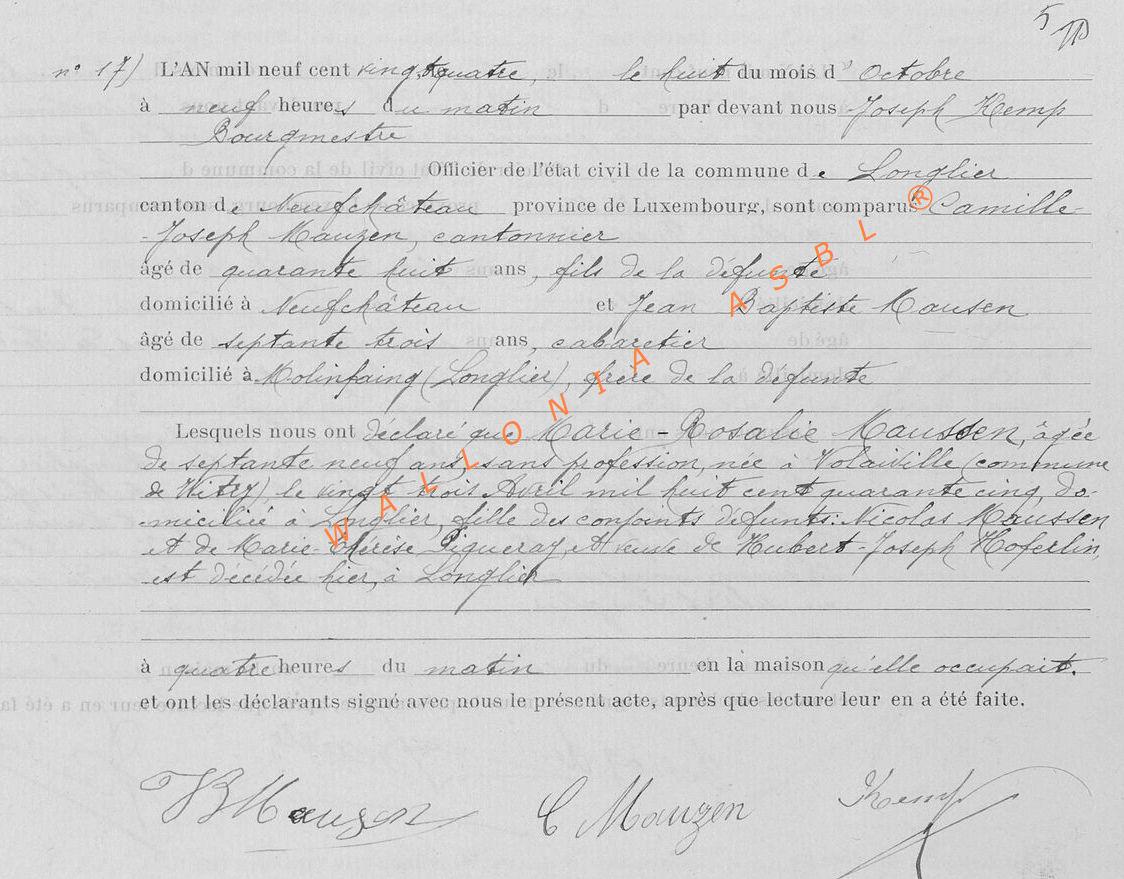 5
n° 17) L'AN mil neuf cent vingt quatre, le huit du mois d'Octobre
à neuf heures du matin par devant nous Joseph Kemp
Bourgmestre
Officier de l'état civil de la commune de Longlier
canton de Neufchâteau province de Luxembourg, sont comparus Camille-
-Joseph Mauzen, cantonnier
âgé de quarante huit ans, fils de la défunte
domicilié à Neufchâteau et Jean Baptiste Mausen
âgé de septante trois ans, cabaretier
domicilié à Molinfaing (Longlier), frère de la défunte
Lesquels nous ont déclaré que Marie-Rosalie Maussen, âgée
de septante neuf ans, sans profession, née à Volaiville (commune
de Witry) le vingt trois Avril mil huit cent quarante cinq, do-
miciliée à Longlier, fille des conjoints défunts: Nicolas Maussen
et de Marie-Thérèse Pigueray, et veuve de Hubert-Joseph Hoferlin,
est décédée hier, à Longlier
à quatre heures du matin en la maison qu'elle occupait.
et ont les déclarants signé avec nous le présent acte, après que lecture leur en a été faite.
JB Mauzen C Mauzen Kemp
WALLONIA ASBL ®